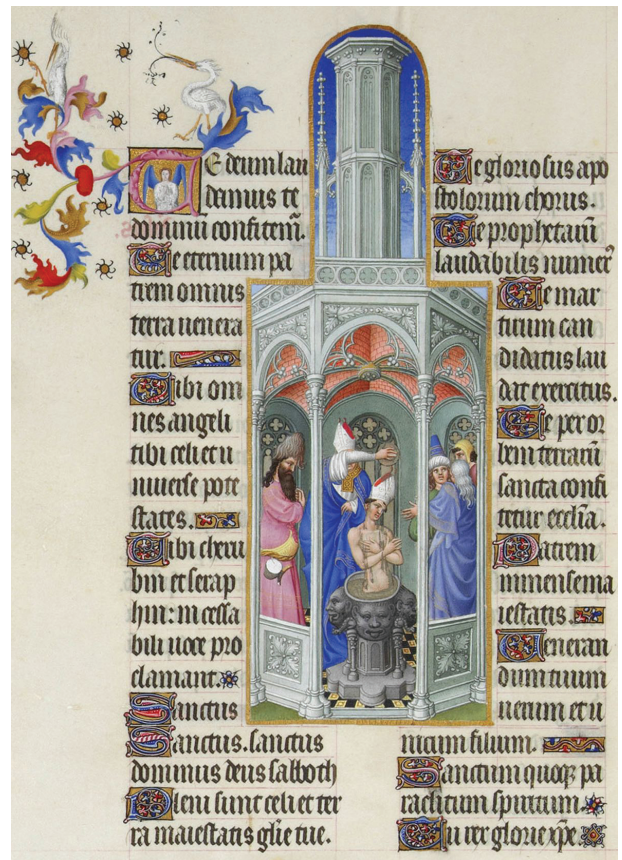 Te deum lau
damus te
dominū confitem̄.
Te eternum pa
trem omnis
terra uenera
tur.
Tibi om
nes angeli
tibi celi et u
niuerse pote
states.
Tibi cheru
bin et serap
hin: in cessa
bili uoce pro
clamant.
Sanctus
Sanctus. sanctus
dominus deus sabboth
Pleni sunt celi et ter
ra maiestatis gl̄ie tue.
Te gloriosus apo
stolorum chorus.
Te prophetarū
laudabilis numer᾽
Te mar
tirum can
didatus lau
dat exercitus.
Te per or
bem terrarū
sancta confi
tetur eccl̄ia.
Patrem
inmense ma
iestatis.
Ueneran
dum tuum
uerum et u
nicum filium.
Sanctum quoqꝫ pa
raclitum spiritum.
Tu rex glorie xp̄e.